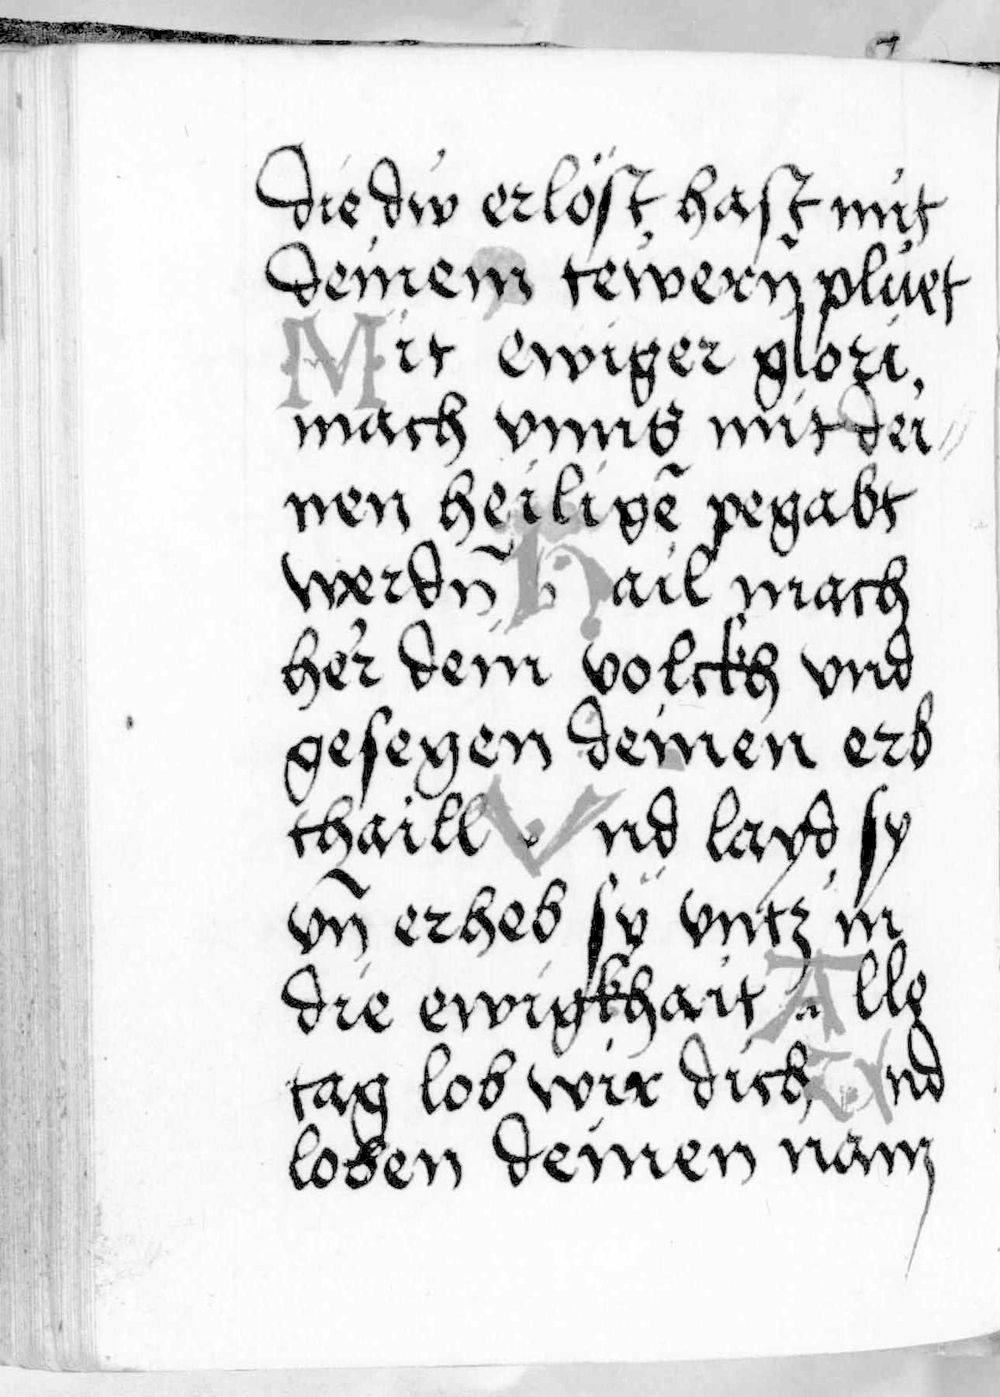 die dw erlöst hast mit
deinem tewern̄ pluet
Mit ewiger glori,
mach vnns mit dei//
nen heiligē pegabt
werdn̄ Hail mach
her dem volckh vnd
gesegen deinen erb
thaill Vnd layd sy
vn̄ erheb sÿ vntz in
die ewigkhait Alle
tag lob wir dich Vnd
loben deinen nam